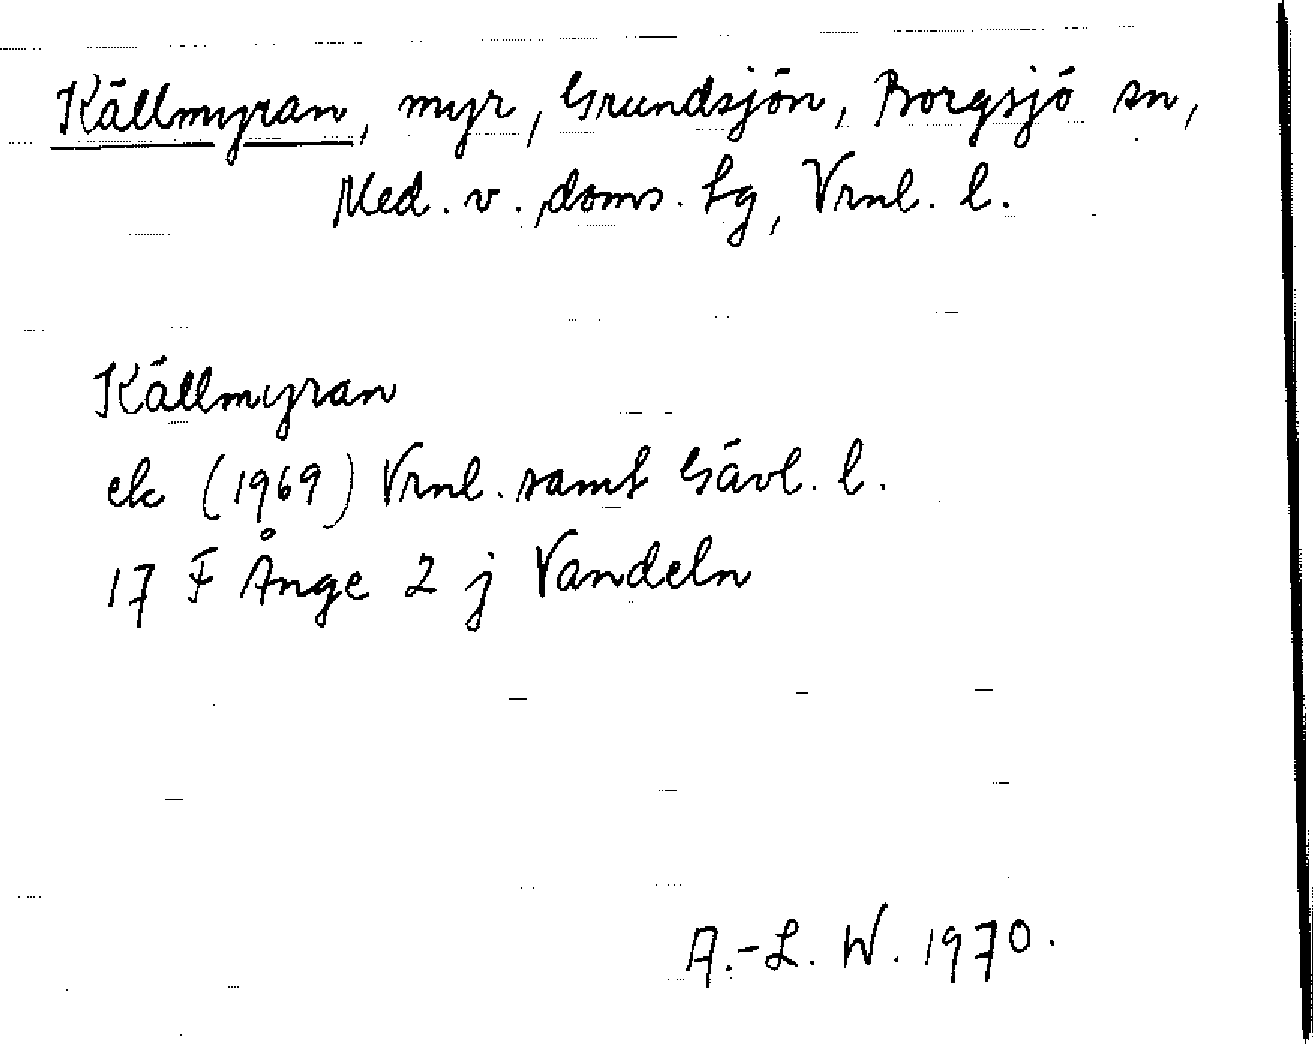 Källmyran, myr, Grundsjön, Borgsjö sn,
Med. v. doms. tg, Vrnl. l.
Källmyran
ek (1969) Vrnl. samt Gävl. l.
17 F Ånge 2 j Vandeln
A.-L. W. 1970.